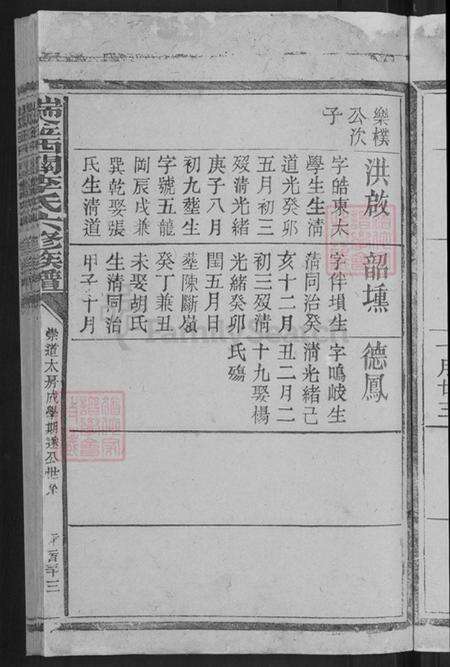 樂樸
公次
子
洪啟
字皓東太
學生生淸
道光癸卯
五月初三
歿淸光緒
庚子八月
初九塟生
字號五龍
岡辰戌兼
巽乾娶張
氏生淸道
韶壎
字伴塤生
淸同治癸
亥十二月
初三歿淸
光緒癸卯
閏五月日
塟陳斷嶺
癸丁兼丑
未娶胡氏
生淸同治
甲子十月
德鳳
字鳴岐生
淸光緒己
丑二月二
十九娶楊
氏殤
瑞金西關李氏六修族譜